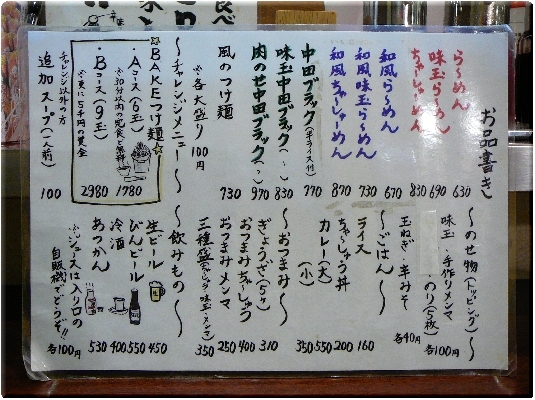 お品書き
ら〜めん 630
味玉ら〜めん 690
ちゃーしゅーめん 830
和風ら〜めん 670
和風味玉ら〜めん 730
和風ちゃーしゅーめん 870
中田ブラック(半ライス付) 770
味玉中田ブラック(〃) 830
肉のせ中田ブラック(〃) 970
風のつけ麺 730
※各大盛り 100円
〜チャレンジメニュー〜
BAKEつけ麺
・Aコース(6玉) 1780
※30分以内の完食で無料
・Bコース(9玉) 2980
※更に5千円の賞金
チャレンジ以外の方
追加スープ(一人前) 100
〜のせ物(トッピング)〜
味玉・手作りメンマ
のり(5枚) 各100円
玉ねぎ・辛みそ 各40円
〜ごはん〜
ライス 160
ちゃーしゅう丼 200
カレー(大) 550
(小) 350
〜おつまみ〜
ぎょうざ(5ヶ) 310
おつまみちゃしゅう 400
おつまみメンマ 250
三種盛(チャシュウ・味玉・メンマ) 350
〜飲みもの〜
生ビール 450
びんビール 550
冷酒 400
あつかん 530
※ジュースは入り口の
自販機でどうぞ!! 各100円